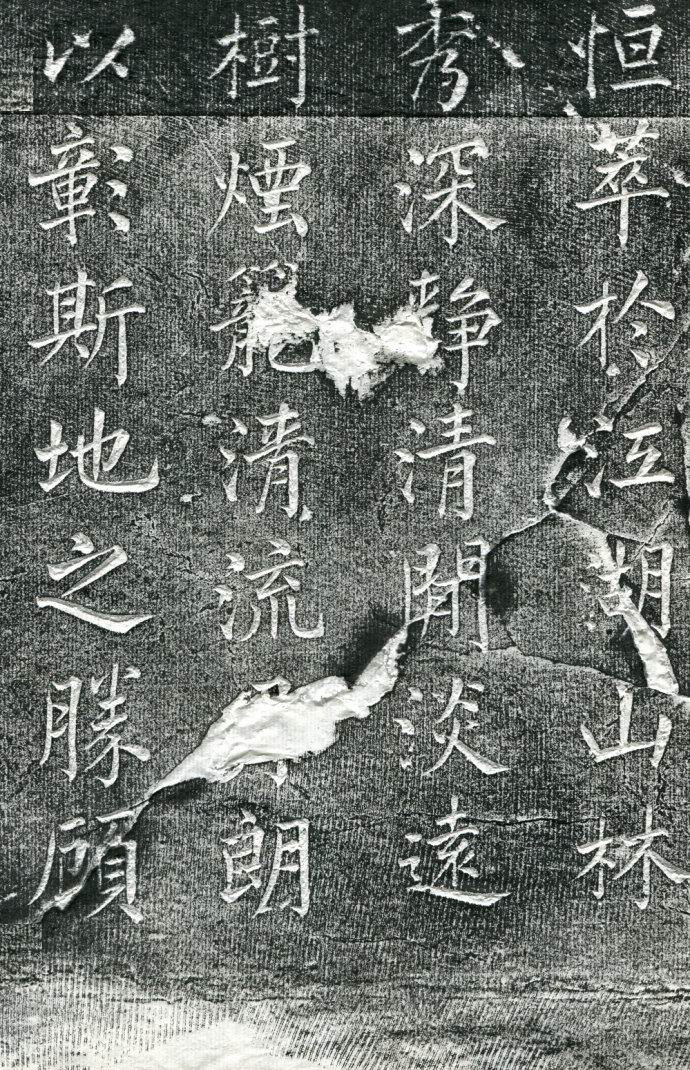 恒萃於江湖山林
秀深静清閒淡遠
樹煙籠清流朗
以彰斯地之勝顧